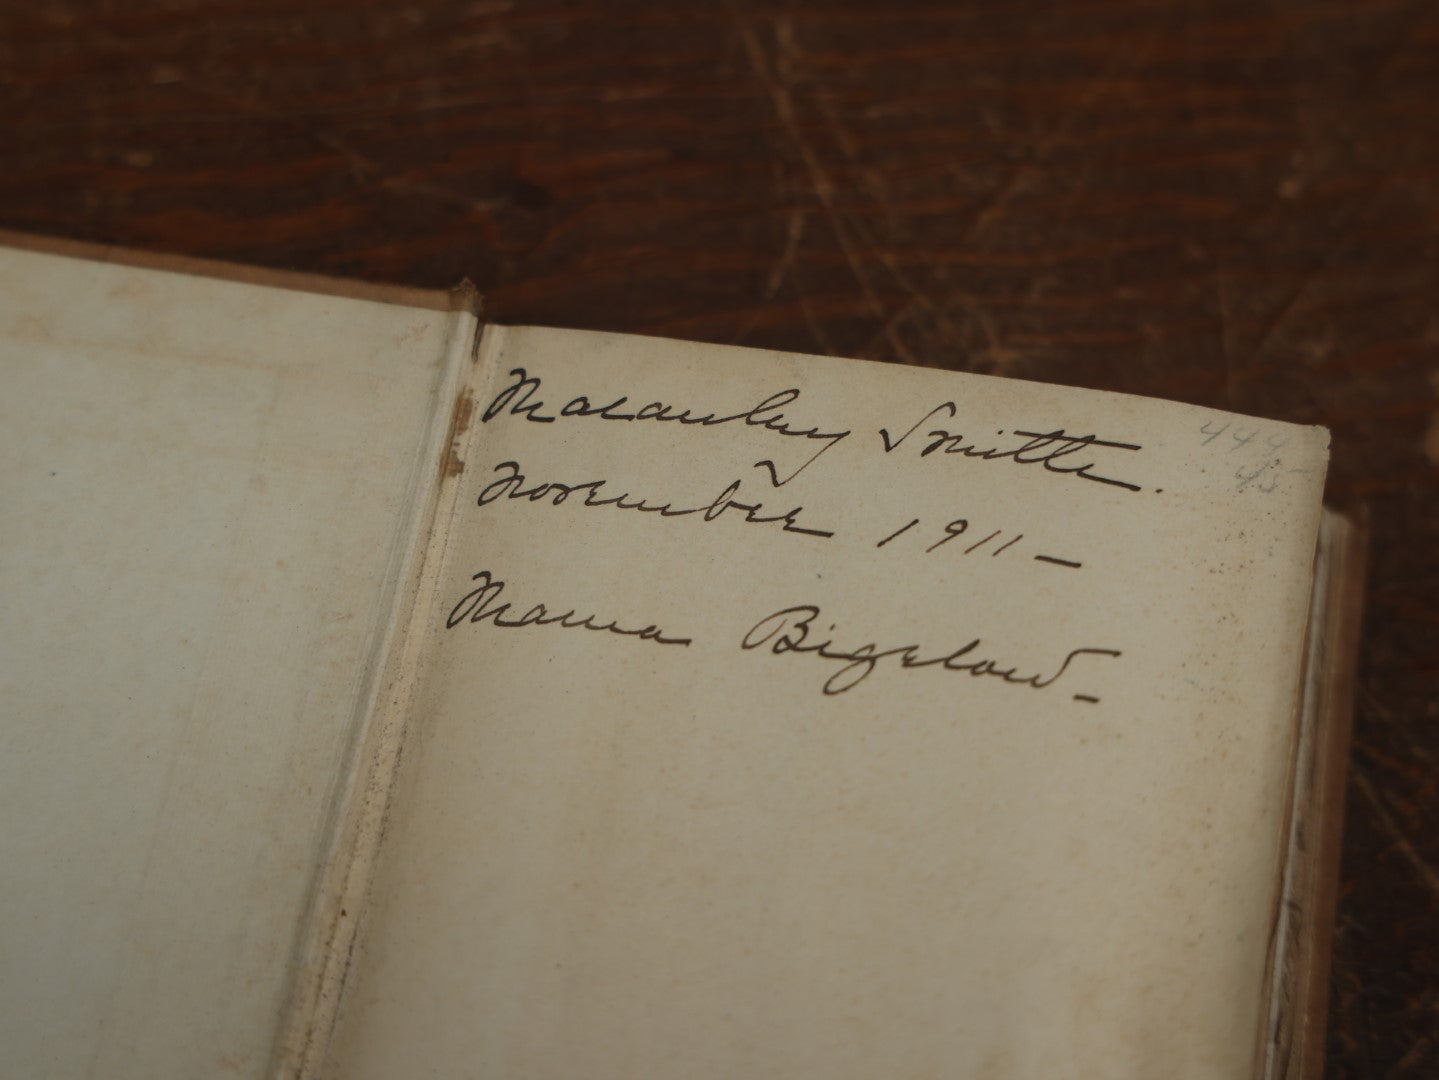 Macauley Smith.
November 1911 -
Mama Bigelow -
444